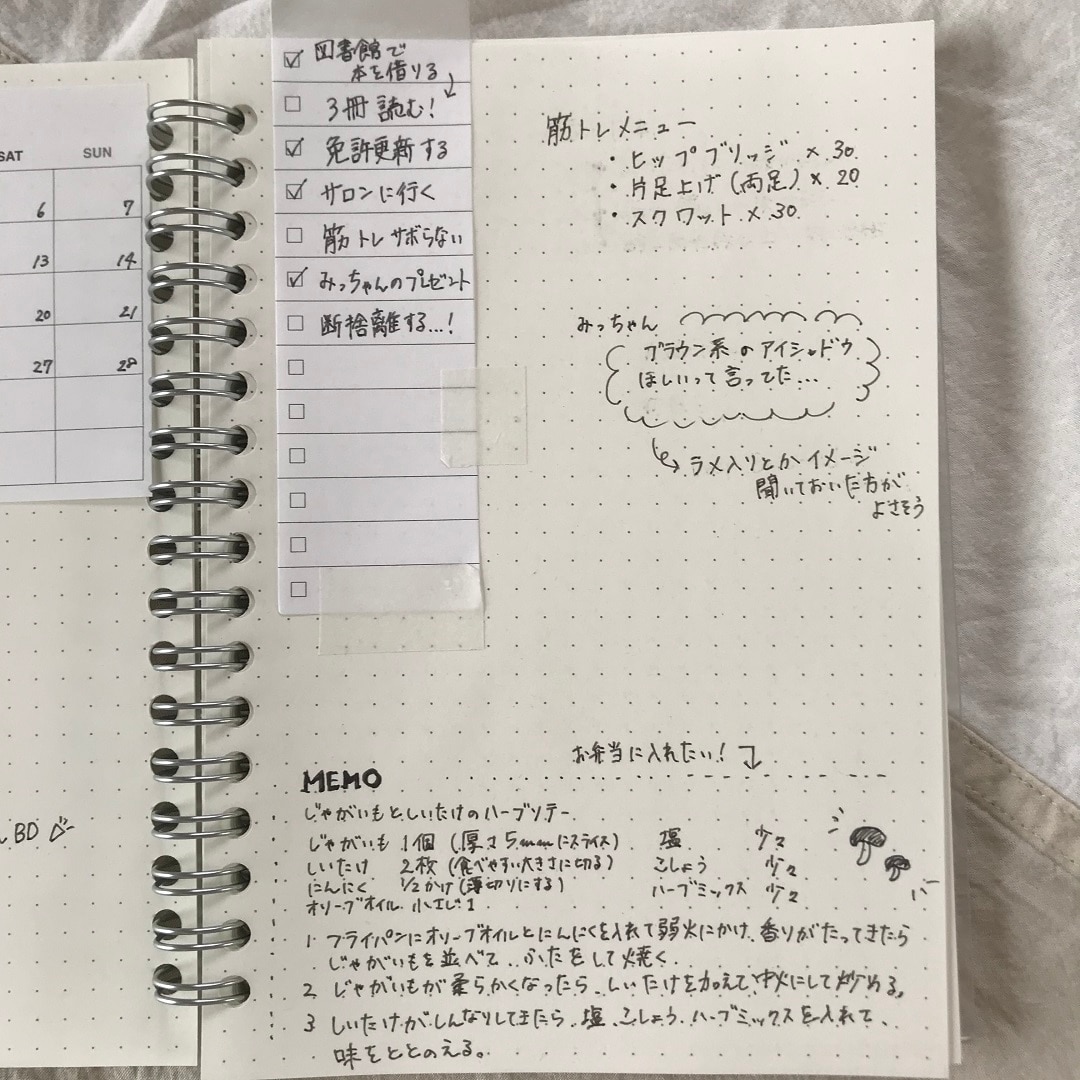 SAT SUN
6 7
13 14
20 21
27 28
BD
図書館で
本を借りる
3冊 読む!
免許更新する
サロンに行く
筋トレサボらない
みっちゃんのプレゼント
断捨離する...!
筋トレメニュー
・ヒップブリッジ × 30
・片足上げ(両足) × 20
・スクワット × 30
みっちゃん
ブラウン系のアイシャドウ
ほしいって言ってた...
ラメ入りとかイメージ
聞いておいた方が
よさそう
お弁当に入れたい!
MEMO
じゃがいもとしいたけのハーブソテー
じゃがいも 1個 (厚さ5mmにスライス) 塩 少々
しいたけ 2枚 (食べやすい大きさに切る) こしょう 少々
にんにく 1/2かけ (薄切りにする) ハーブミックス 少々
オリーブオイル 小さじ1
1 フライパンにオリーブオイルとにんにくを入れて弱火にかけ、香りがたってきたら
じゃがいもを並べて、ふたをして焼く。
2 じゃがいもが柔らかくなったら、しいたけを加えて中火にして炒める。
3 しいたけがしんなりしてきたら、塩、こしょう、ハーブミックスを入れて、
味をととのえる。